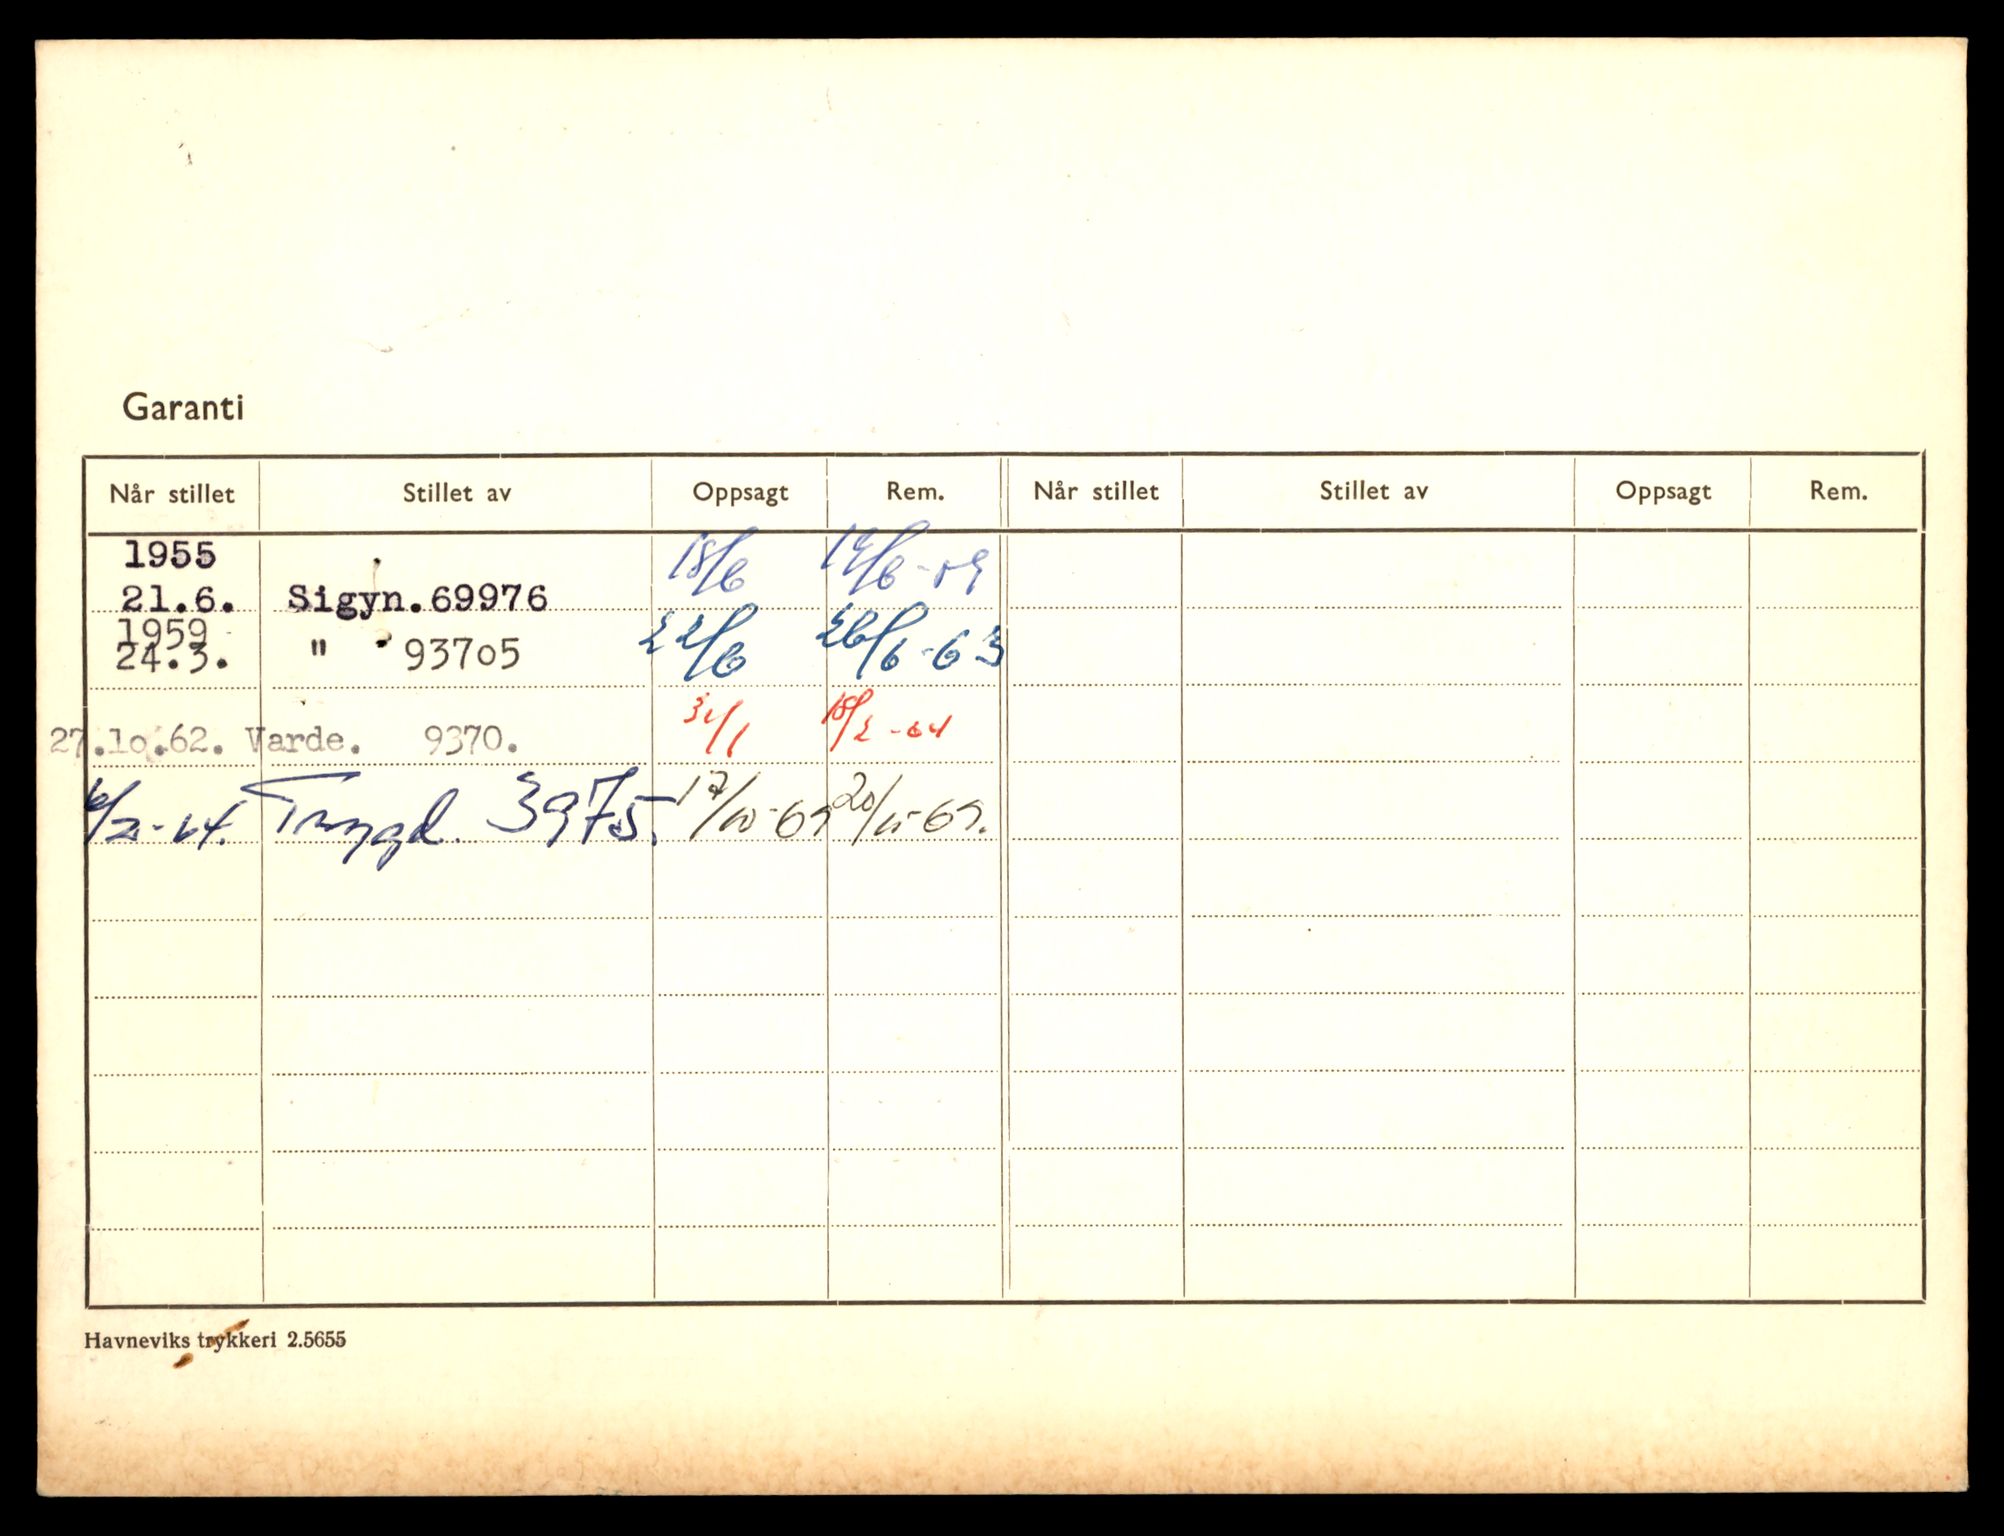 Garanti
Når stillet Stillet av Oppsagt Rem. Når stillet Stillet av Oppsagt Rem.
1955
21.6. Sigyn.69976 18/6 19/6-59
1959
24.3. " 93705 22/6 26/6-63
27.10.62. Varde. 9370. 31/1 18/2-64
6/2-64. Trygd. 3975. 17/10-69 20/10-69.
Havneviks trykkeri 2.5655